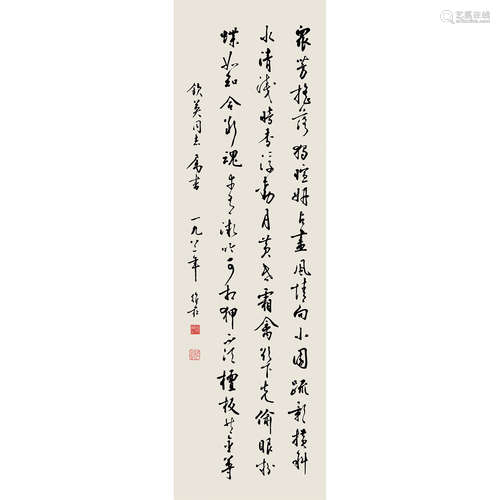 艺狐在线
artfoxlive.com
眾芳搖落獨暄妍占盡風情向小園疏影橫斜
水清淺暗香浮動月黃昏霜禽欲下先偷眼粉
蝶如知合斷魂幸有微吟可相狎不須檀板共金尊
英同志属書 一九八年